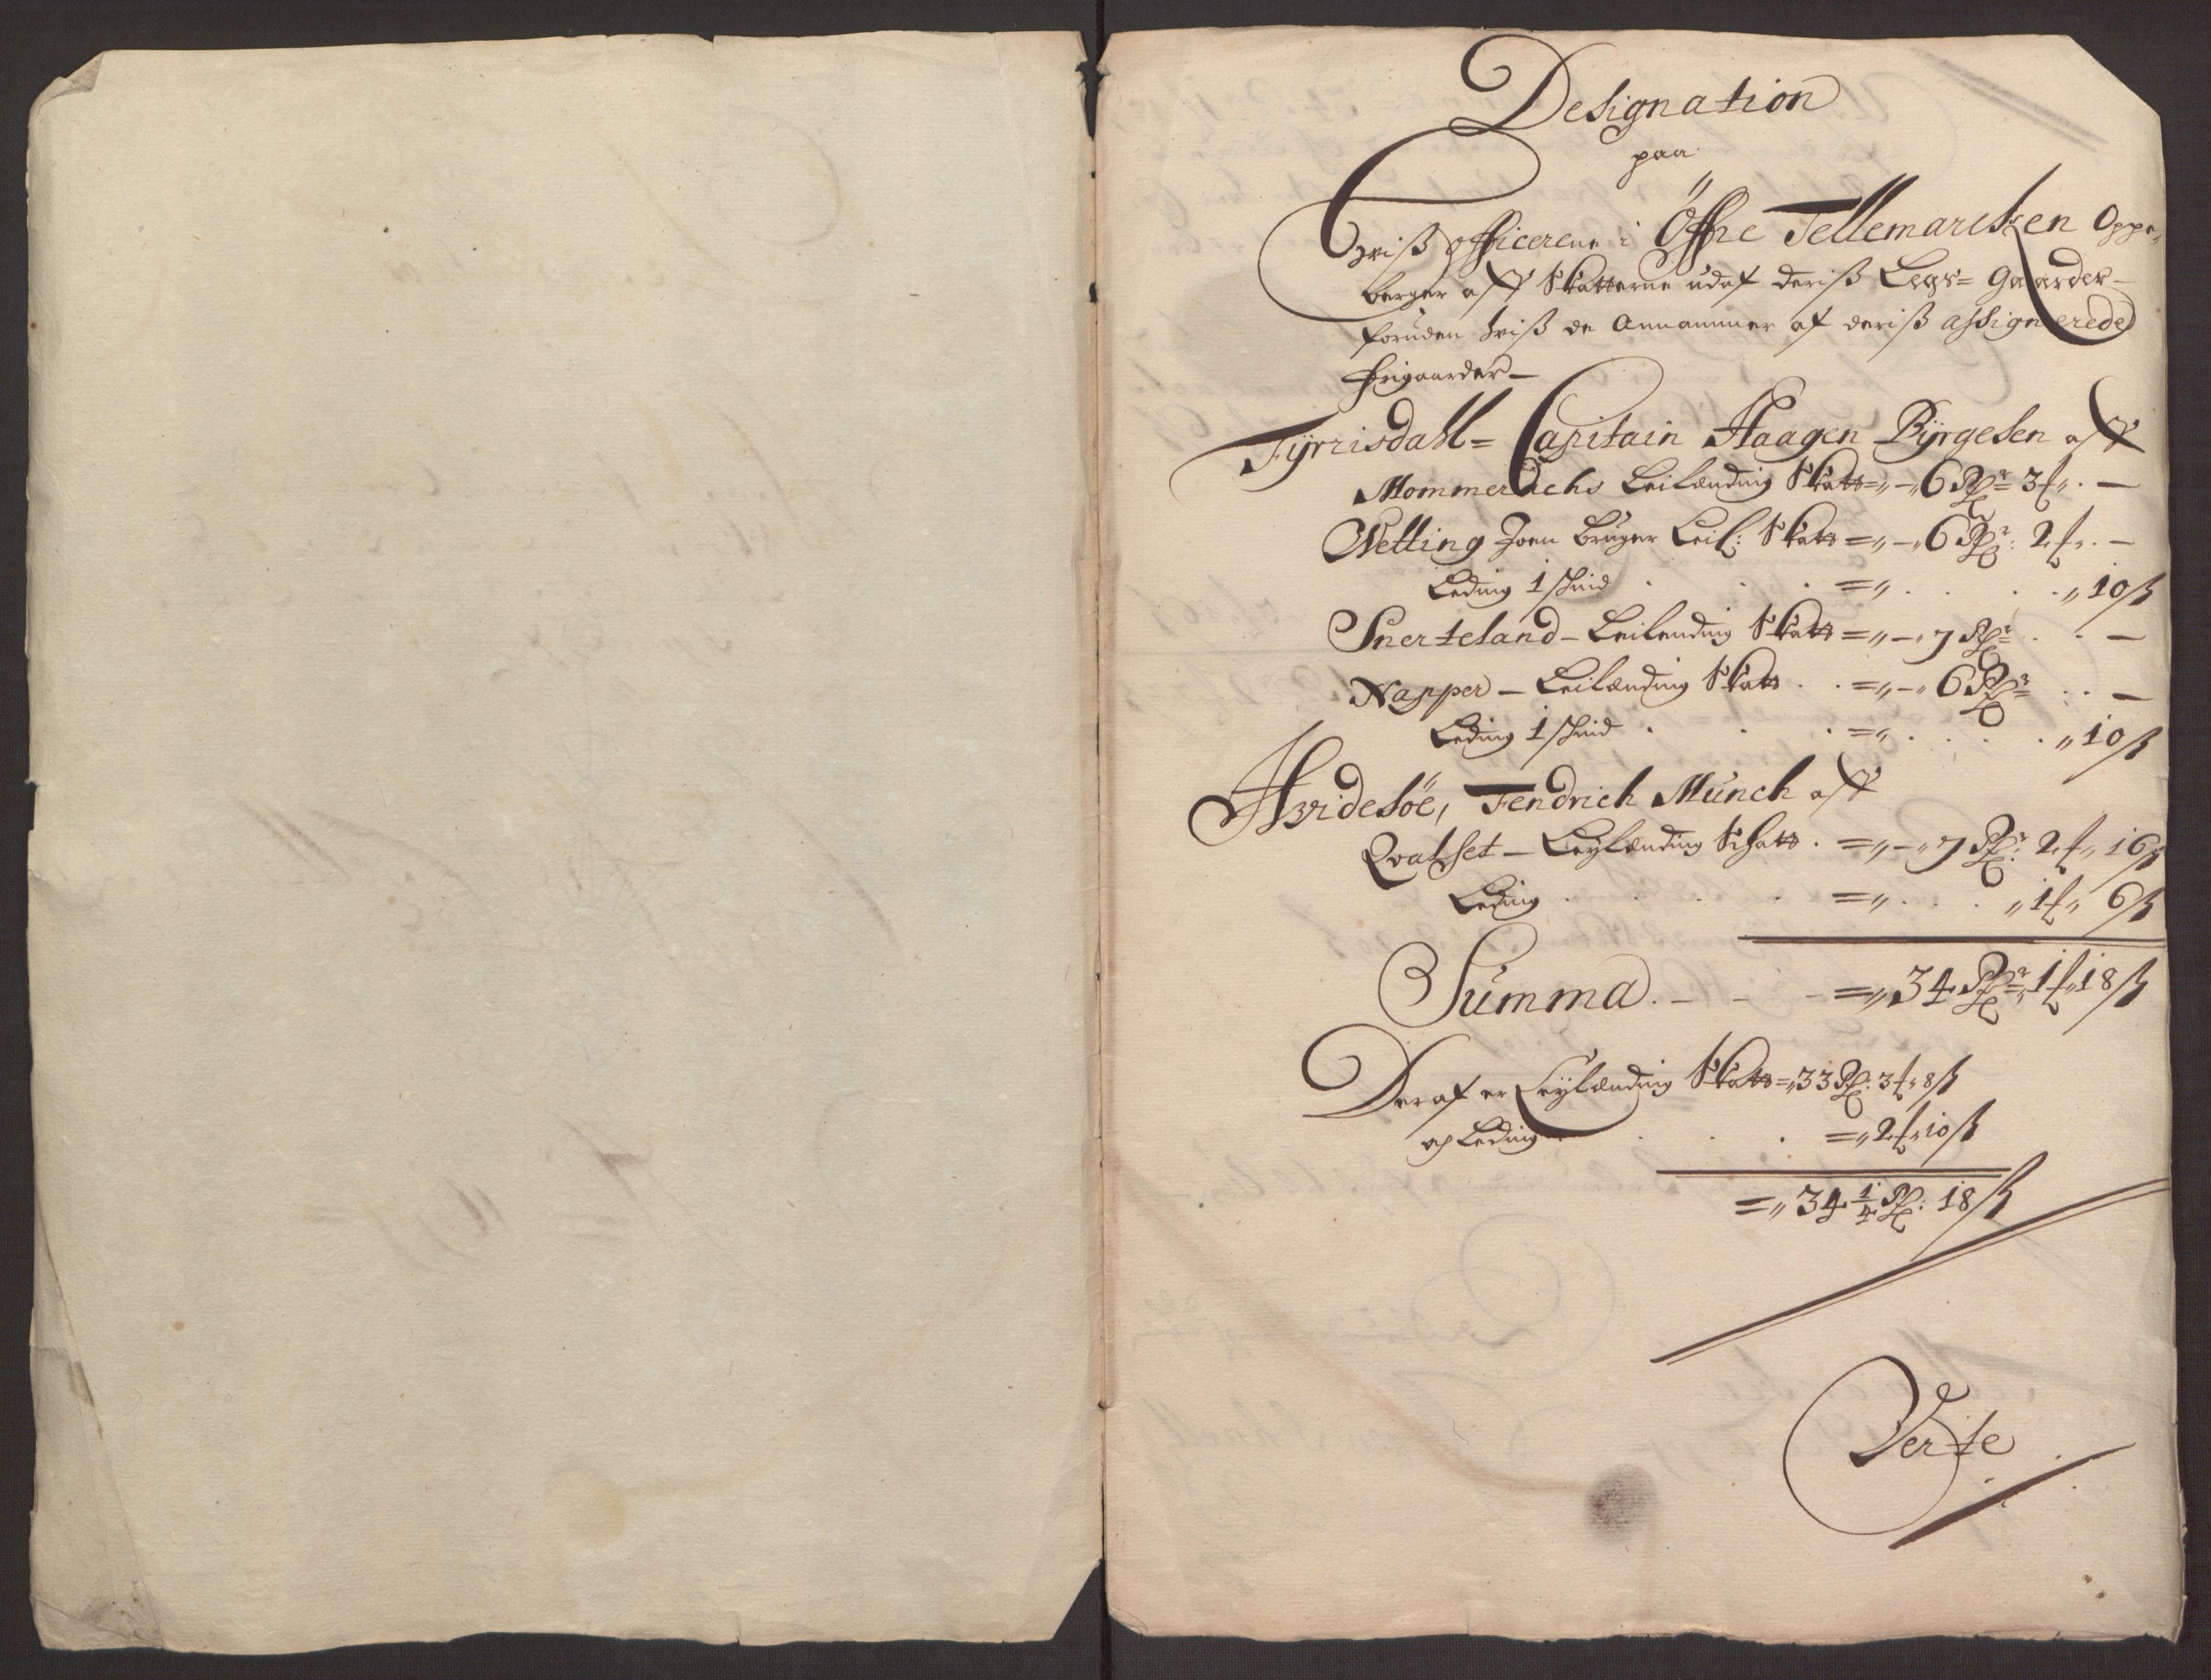 Designation
paa
Hviß Officerene i Öffre Tellemarcken Oppe,
berger aff Skatterne udaf deriß Legs= Gaarder
foruden hviß de Annammer af deriß assignerede
frigaarder
Tyrrisdahl= Capitain Haagen Byrgesen aff
Mommerachs Leilænding Skatt =„-„6 Rdr= 3 f„. -
Wetting Joen bruger Leil: Skatt =„-„6 Rdr: 2 f„. -
Leding 1 skind . . . =„ . . . „10 ß
Snerteland - Leilending Skatt =„-„7 Rdr= . . -
Napper - Leilænding Skatt . . =„-„6 Rdr= . . -
Leding 1 skind . . . =„ . . . „10 ß
Hvidesöe, Fendrich Munch aff
Qvalset - Leylænding Schatt . =„-„7 Rdr: 2 f„ 16 ß
Leding . . . . =„ . . . „1 f„ 6 ß
Summa . - - - =„34 Rdr=„1 f„18 ß
Deraf er Leylænding Skatt =„33 Rd: 3 f„ 8 ß
og Leding . . . . =„2 f„10 ß
=„34 1/4 Rd: 18 ß
Verte